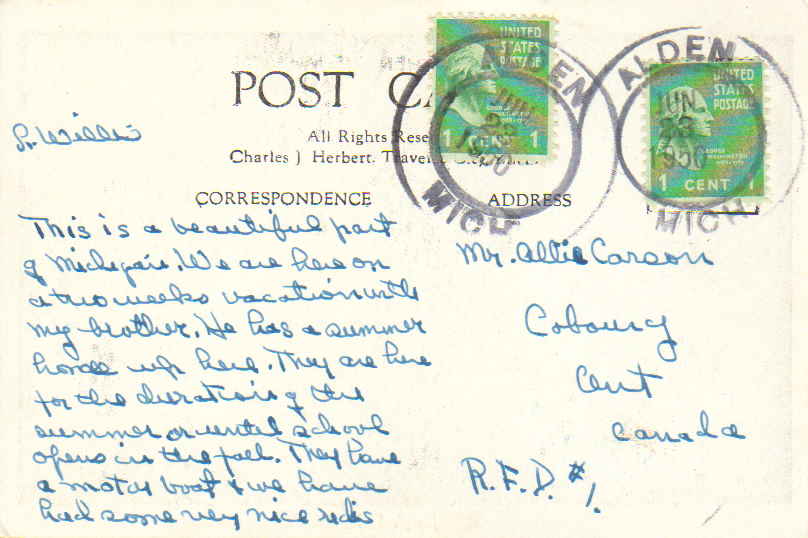 UNITED
STATES
POSTAGE
1 CENT 1
ALDEN
JUN
23
1950
MICH
UNITED
STATES
POSTAGE
GEORGE
WASHINGTON
1 CENT 1
ALDEN
JUN
23
1950
MICH
POST CA
All Rights Rese
Charles J Herbert. Travel
CORRESPONDENCE
ADDRESS
This is a beautiful part
of Michigan. We are here on
a two weeks vacation with
my brother. He has a summer
home up here. They are here
for the duration of the
summer or until school
opens in the fall. They have
a motor boat & we have
had some very nice rides
Mr. Allie Carson
Cobourg
Ont
Canada
R.F.D. #1.